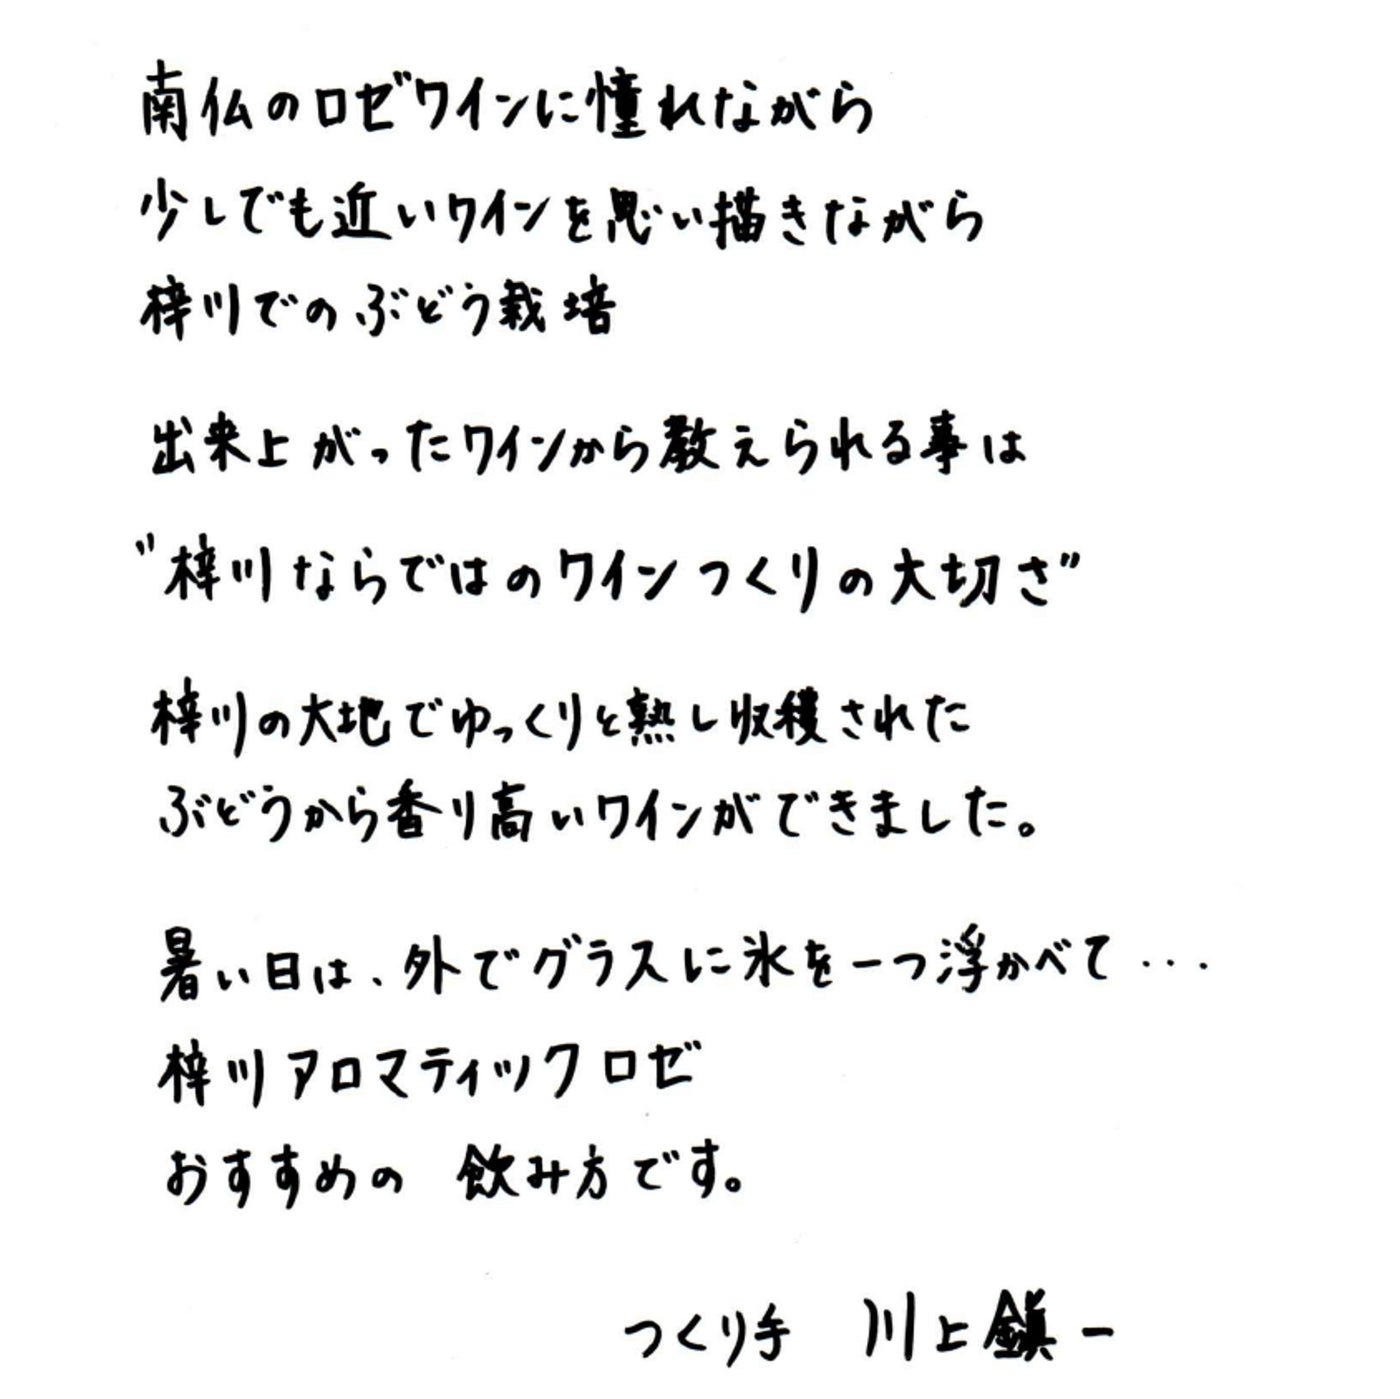 南仏のロゼワインに憧れながら
少しでも近いワインを思い描きながら
梓川でのぶどう栽培
出来上がったワインから教えられる事は
"梓川ならではのワインつくりの大切さ"
梓川の大地でゆっくりと熟し収穫された
ぶどうから香り高いワインができました。
暑い日は、外でグラスに氷を一つ浮かべて・・・
梓川アロマティックロゼ
おすすめの 飲み方です。
つくり手 川上鎭一